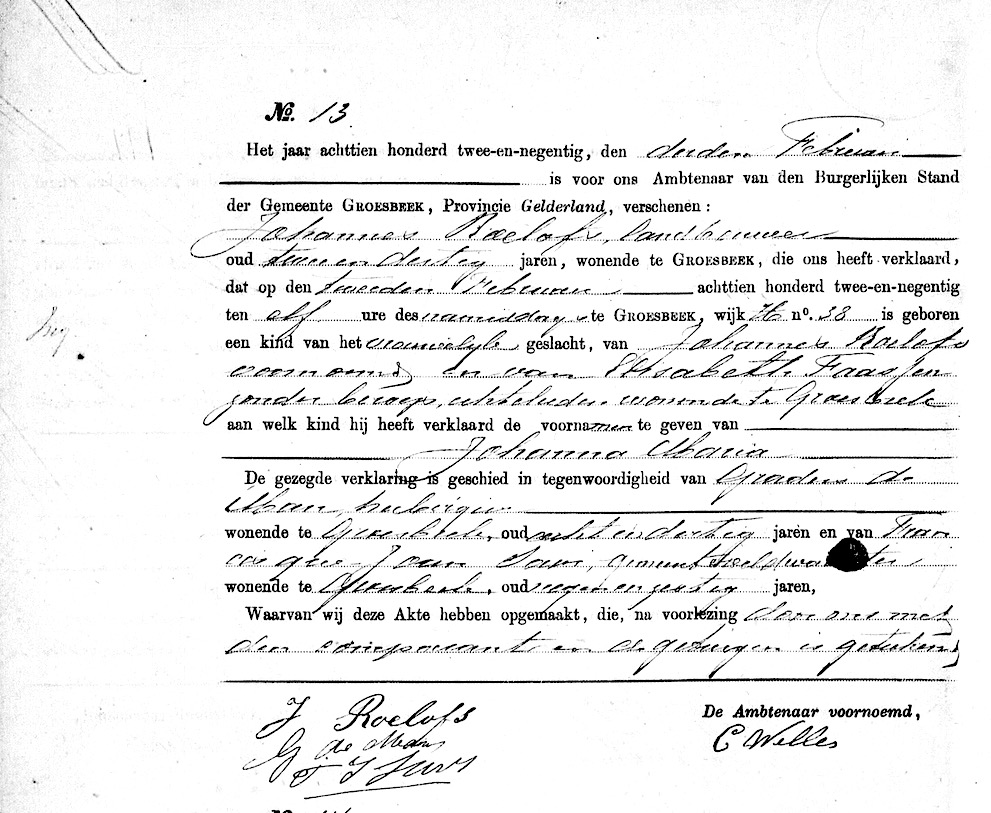 No. 13
Het jaar achttien honderd twee-en-negentig, den derden Februari
is voor ons Ambtenaar van den Burgerlijken Stand
der Gemeente GROESBEEK, Provincie Gelderland, verschenen:
Johannes Roelofs, landbouwer
oud twee en dertig jaren, wonende te GROESBEEK, die ons heeft verklaard,
dat op den tweeden Februari achttien honderd twee-en-negentig
ten elf ure des namiddags te GROESBEEK, wijk H no. 38 is geboren
een kind van het vrouwelijk geslacht, van Johannes Roelofs
voornoemd en van Elisabeth Faassen
zonder beroep, echtelieden wonende te Groesbeek
aan welk kind hij heeft verklaard de voornamen te geven van
Johanna Maria
De gezegde verklaring is geschied in tegenwoordigheid van Gradus de
Man, herbergier
wonende te Groesbeek, oud acht en dertig jaren en van Fran
Jean, gemeenteveldwachter,
wonende te Groesbeek, oud negen en zestig jaren,
Waarvan wij deze Akte hebben opgemaakt, die, na voorlezing door ons met
den comparant en de getuigen is geteekend
J Roelofs
De Ambtenaar voornoemd,
G de Man
C Welles
F J